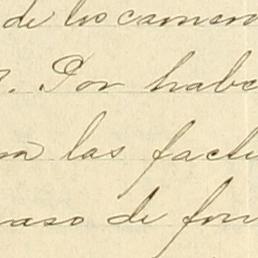 de los camero
. Por habe
las factu
paso de fon